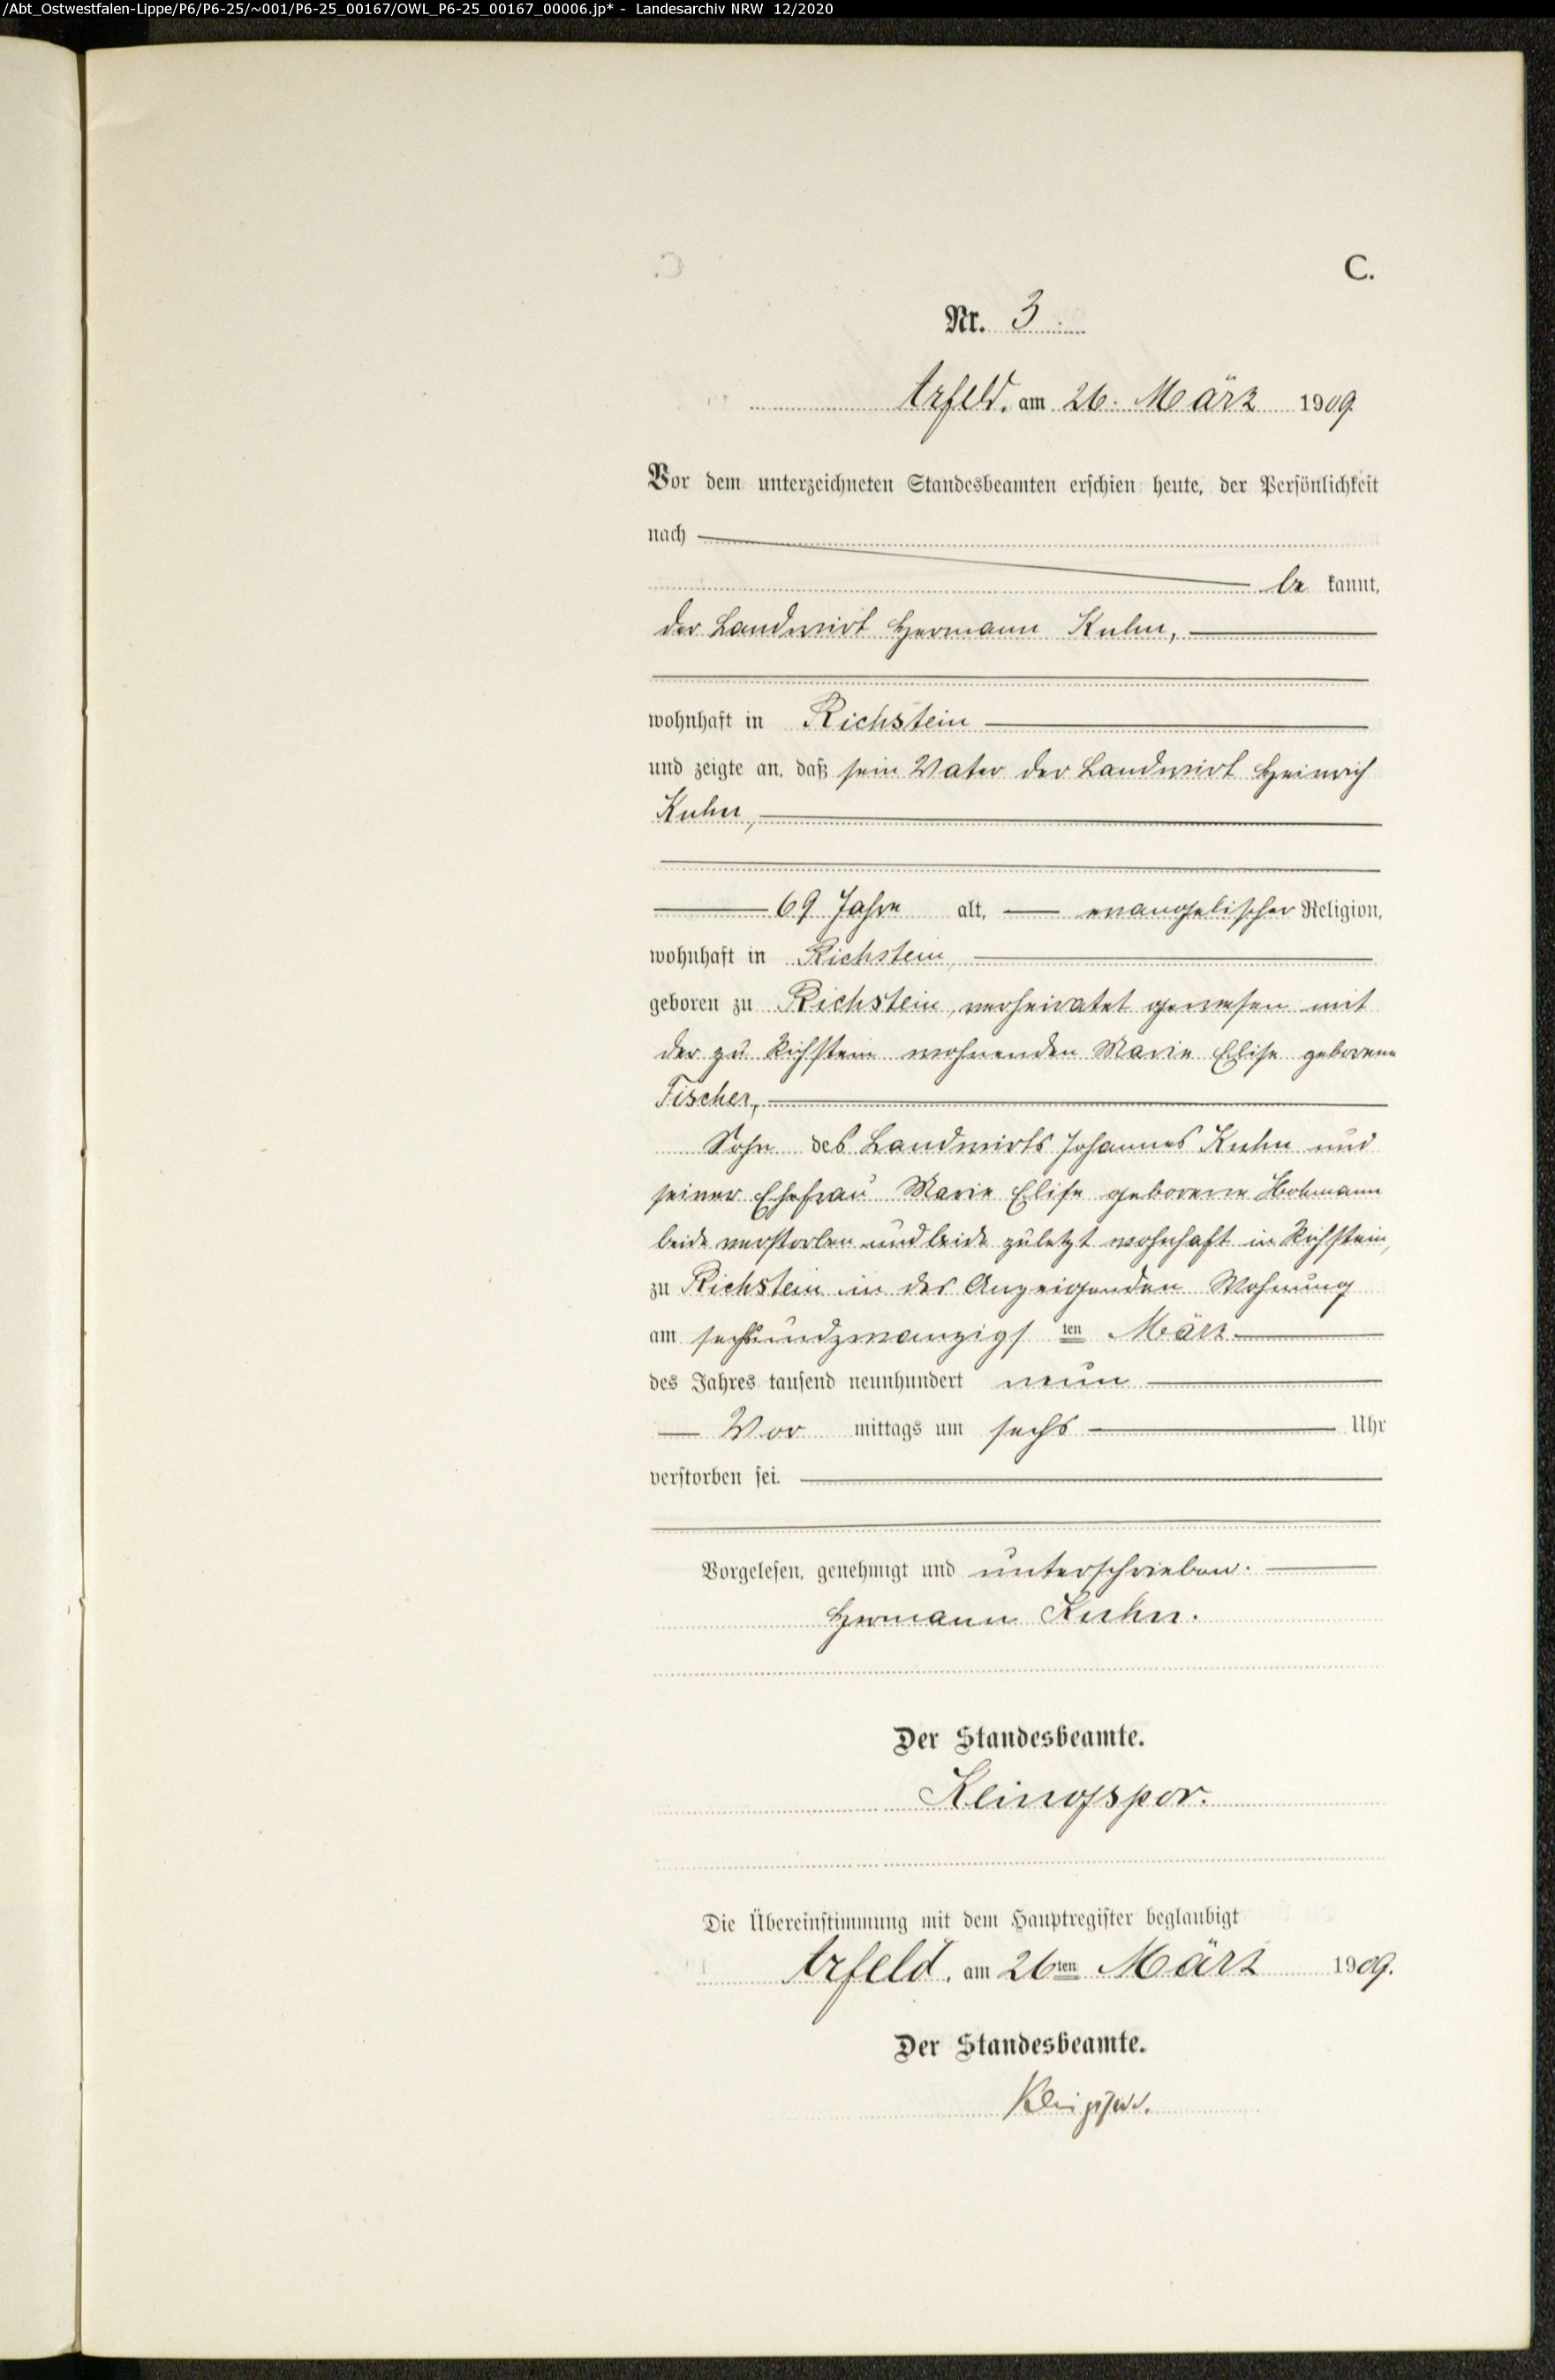 /Abt_Ostwestfalen-Lippe/P6/P6-25/~001/P6-25_00167/OWL_P6-25_00167_00006.jp* - Landesarchiv NRW 12/2020
C.
Nr. 3.
Arfeld, am 26. März 1909
Vor dem unterzeichneten Standesbeamten erschien heute, der Persönlichkeit
nach
be kannt,
der Landwirt Hermann Kuhn,
wohnhaft in Richstein
und zeigte an, daß sein Vater der Landwirt Heinrich
Kuhn,
69 Jahre alt, evangelischer Religion,
wohnhaft in Richstein,
geboren zu Richstein, verheiratet gewesen mit
der zu Richstein wohnenden Marie Elise geborene
Fischer,
Sohn des Landwirts Johannes Kuhn und
seiner Ehefrau Marie Elise geborene
beide verstorben und beide zuletzt wohnhaft in Richstein,
zu Richstein in des Anzeigenden Wohnung
am sechsundzwanzigs ten März
des Jahres tausend neunhundert neun
Vor mittags um sechs Uhr
verstorben sei.
Vorgelesen, genehmigt und unterschrieben.
Hermann Kuhn.
Der Standesbeamte.
Kleingspor.
Die Übereinstimmung mit dem Hauptregister beglaubigt
Arfeld, am 26ten März 1909.
Der Standesbeamte.